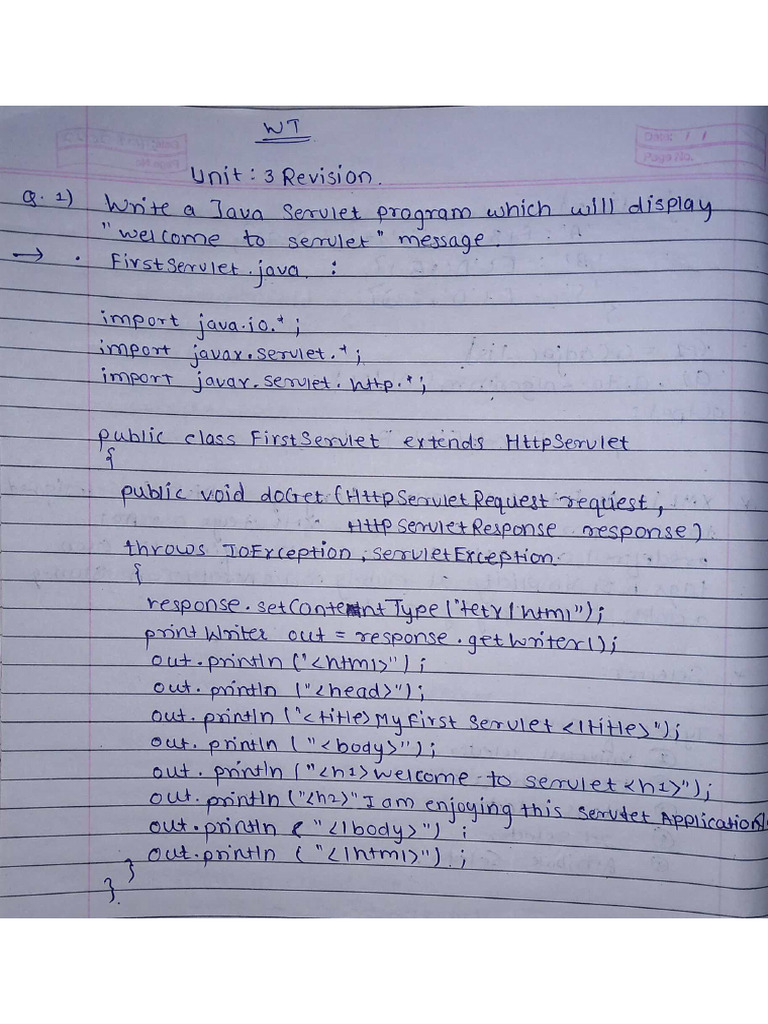 WT
Unit : 3 Revision.
Q. 1) Write a Java Servlet program which will display
"welcome to servlet" message.
→ . FirstServlet.java :
import java.io.*;
import javax.servlet.*;
import javax.servlet.http.*;
public class FirstServlet extends HttpServlet
{
public void doGet (HttpServletRequest request,
HttpServletResponse response)
throws IoException, servletException.
{
response.setContentType ("text/html");
printWriter out = response.getWriter();
out.println ("<html>");
out. println ("<head>");
out. println ("<title>My First Servlet </title>");
out. println ("<body>");
out. println ("<h1>welcome to servlet<h1>");
out. println ("<h2>"I am enjoying this servlet Application
out.println ( "</body>") ;
out.println ( "</html>") ;
}
}.
Date: / /
Page No.